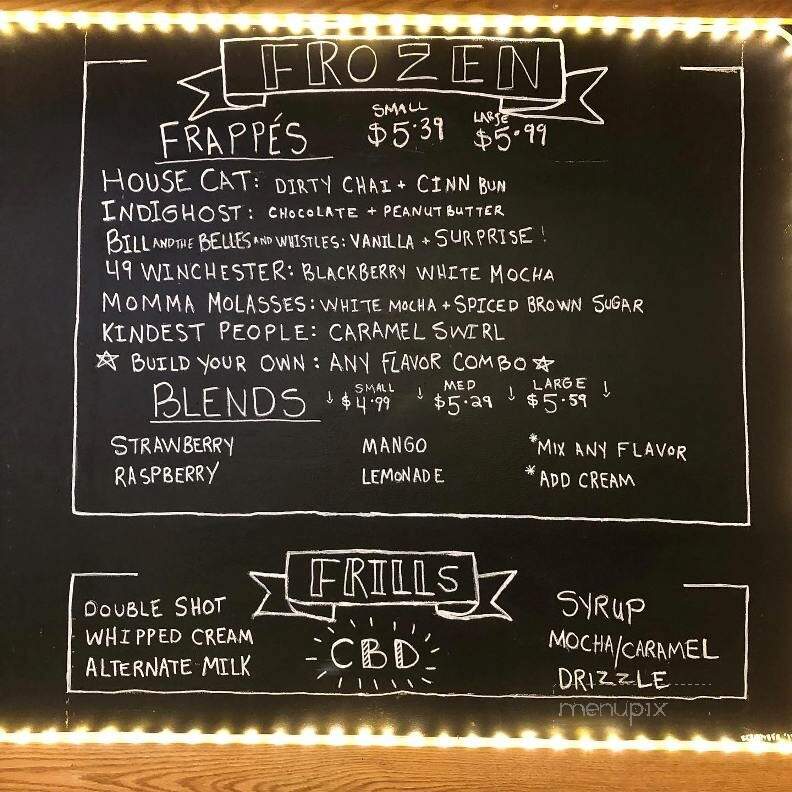 FROZEN
FRAPPÉS SMALL $5.39 LARGE $5.99
HOUSE CAT: DIRTY CHAI + CINN BUN
INDIGHOST: CHOCOLATE + PEANUT BUTTER
BILL AND THE BELLES AND WHISTLES: VANILLA + SURPRISE!
49 WINCHESTER: BLACKBERRY WHITE MOCHA
MOMMA MOLASSES: WHITE MOCHA + SPICED BROWN SUGAR
KINDEST PEOPLE: CARAMEL SWIRL
☆ BUILD YOUR OWN: ANY FLAVOR COMBO ☆
BLENDS ↓ SMALL $4.99 ↓ MED $5.29 ↓ LARGE $5.59 ↓
STRAWBERRY MANGO *MIX ANY FLAVOR
RASPBERRY LEMONADE *ADD CREAM
FRILLS
DOUBLE SHOT
WHIPPED CREAM
ALTERNATE MILK
CBD
SYRUP
MOCHA/CARAMEL
DRIZZLE
menupix